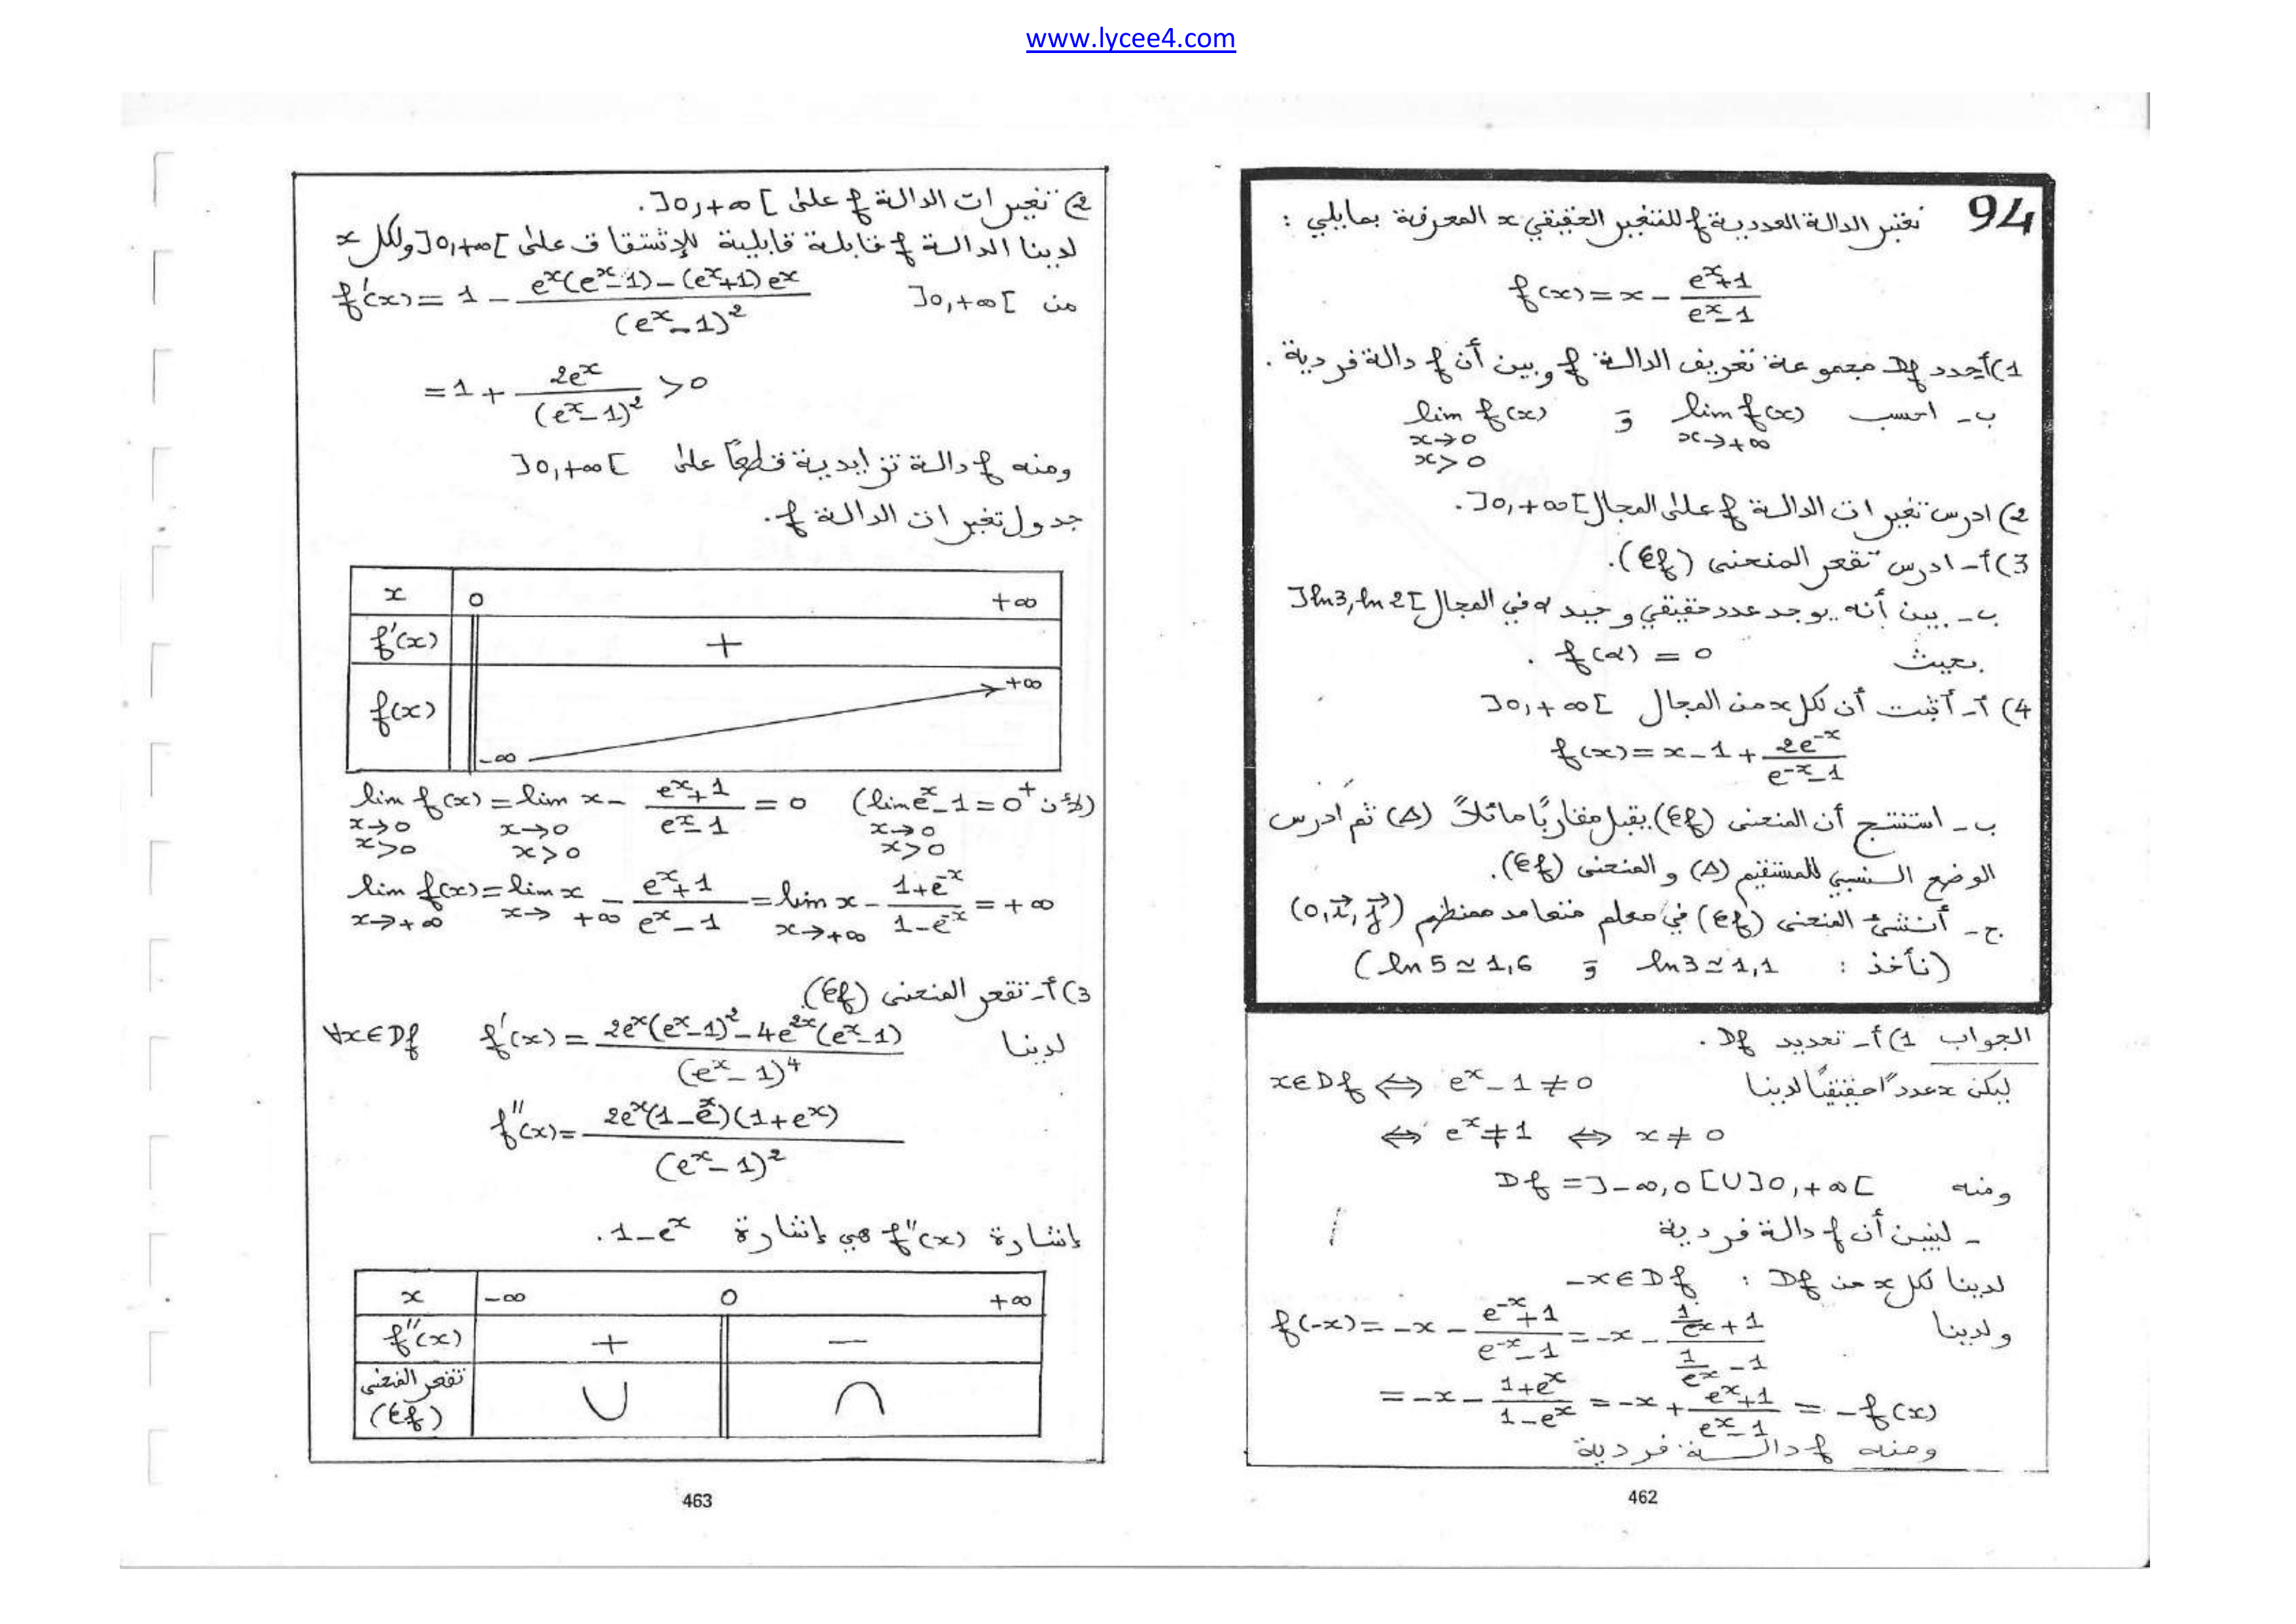 www.lycee4.com
94 نعتبر الدالة العددية f للمتغير الحقيقي x المعرفة بمايلي :
f(x) = x - \frac{e^x+1}{e^x-1}
1) أ_ حدد Df مجموعة تعريف الدالة f وبين أن f دالة فردية .
ب_ احسب \lim_{x→+∞} f(x) و \lim_{x→0, x>0} f(x)
2) ادرس تغيرات الدالة f على المجال ]0,+∞[.
3) أ_ ادرس تقعر المنحنى (Cf).
ب_ بين أنه يوجد عدد حقيقي وحيد α في المجال ]ln3, ln2[
بحيث f(α) = 0 .
4) أ_ أثبت أن لكل x من المجال ]0,+∞[
f(x) = x - 1 + \frac{2e^{-x}}{e^{-x}-1}
ب_ استنتج أن المنحنى (Cf) يقبل مقاربًا مائلاً (Δ) ثم ادرس
الوضع النسبي للمستقيم (Δ) و المنحنى (Cf).
ج_ أنشئ المنحنى (Cf) في معلم متعامد ممنظم (0,\vec{i},\vec{j})
(نأخذ : ln3 ≃ 1,1 و ln5 ≃ 1,6)
الجواب 1) أ_ تحديد Df .
ليكن x عددًا حقيقيًا لدينا x∈Df ⇔ e^x - 1 ≠ 0
⇔ e^x ≠ 1 ⇔ x ≠ 0
ومنه Df = ]-∞,0[U]0,+∞[
_ لنبين أن f دالة فردية
لدينا لكل x من Df : -x∈Df
ولدينا f(-x) = -x - \frac{e^{-x}+1}{e^{-x}-1} = -x - \frac{\frac{1}{e^x}+1}{\frac{1}{e^x}-1}
= -x - \frac{1+e^x}{1-e^x} = -x + \frac{e^x+1}{e^x-1} = -f(x)
ومنه f دالة فردية
462
2) تغيرات الدالة f على ]0,+∞[.
لدينا الدالة f قابلة قابلية للإشتقاق على ]0,+∞[ ولكل x
من ]0,+∞[ f'(x) = 1 - \frac{e^x(e^x-1)-(e^x+1)e^x}{(e^x-1)^2}
= 1 + \frac{2e^x}{(e^x-1)^2} > 0
ومنه f دالة تزايدية قطعًا على ]0,+∞[
جدول تغيرات الدالة f.
x 0 +∞
f'(x) +
f(x) -∞ +∞
\lim_{x→0, x>0} f(x) = \lim_{x→0, x>0} x - \frac{e^x+1}{e^x-1} = 0 (لأن \lim_{x→0, x>0} e^x-1 = 0^+)
\lim_{x→+∞} f(x) = \lim_{x→+∞} x - \frac{e^x+1}{e^x-1} = \lim_{x→+∞} x - \frac{1+e^{-x}}{1-e^{-x}} = +∞
3) أ_ تقعر المنحنى (Cf).
لدينا f'(x) = \frac{2e^x(e^x-1)^2-4e^{2x}(e^x-1)}{(e^x-1)^4} ∀x∈Df
f''(x) = \frac{2e^x(1-e^x)(1+e^x)}{(e^x-1)^2}
إشارة f''(x) هي إشارة 1-e^x.
x -∞ 0 +∞
f''(x) + -
تقعر المنحنى (Cf) ∪ ∩
463